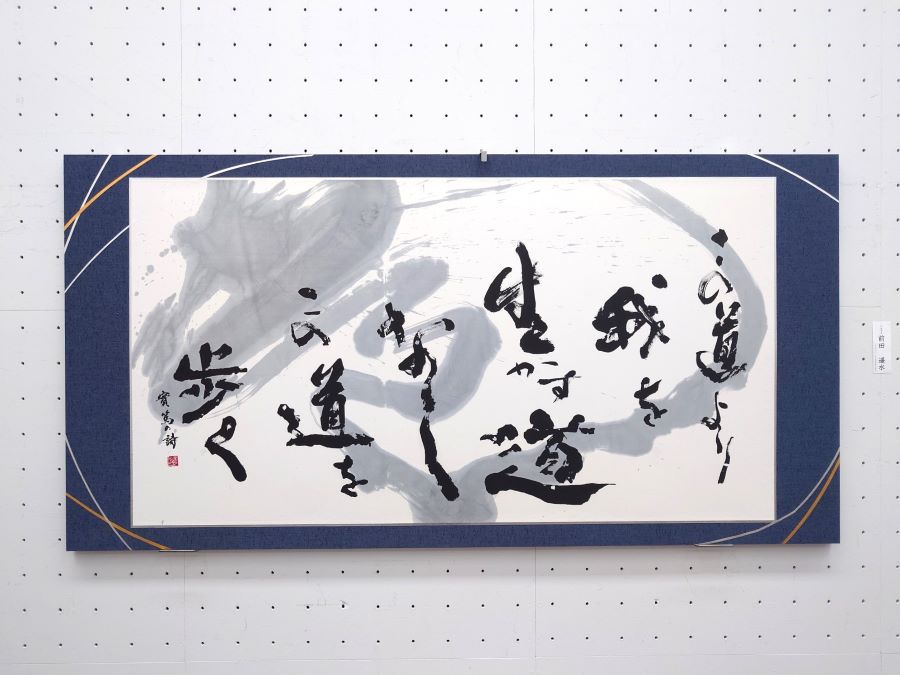 この道より
我を
生かす道
なし
この道を
歩く
實篤の詩
前田